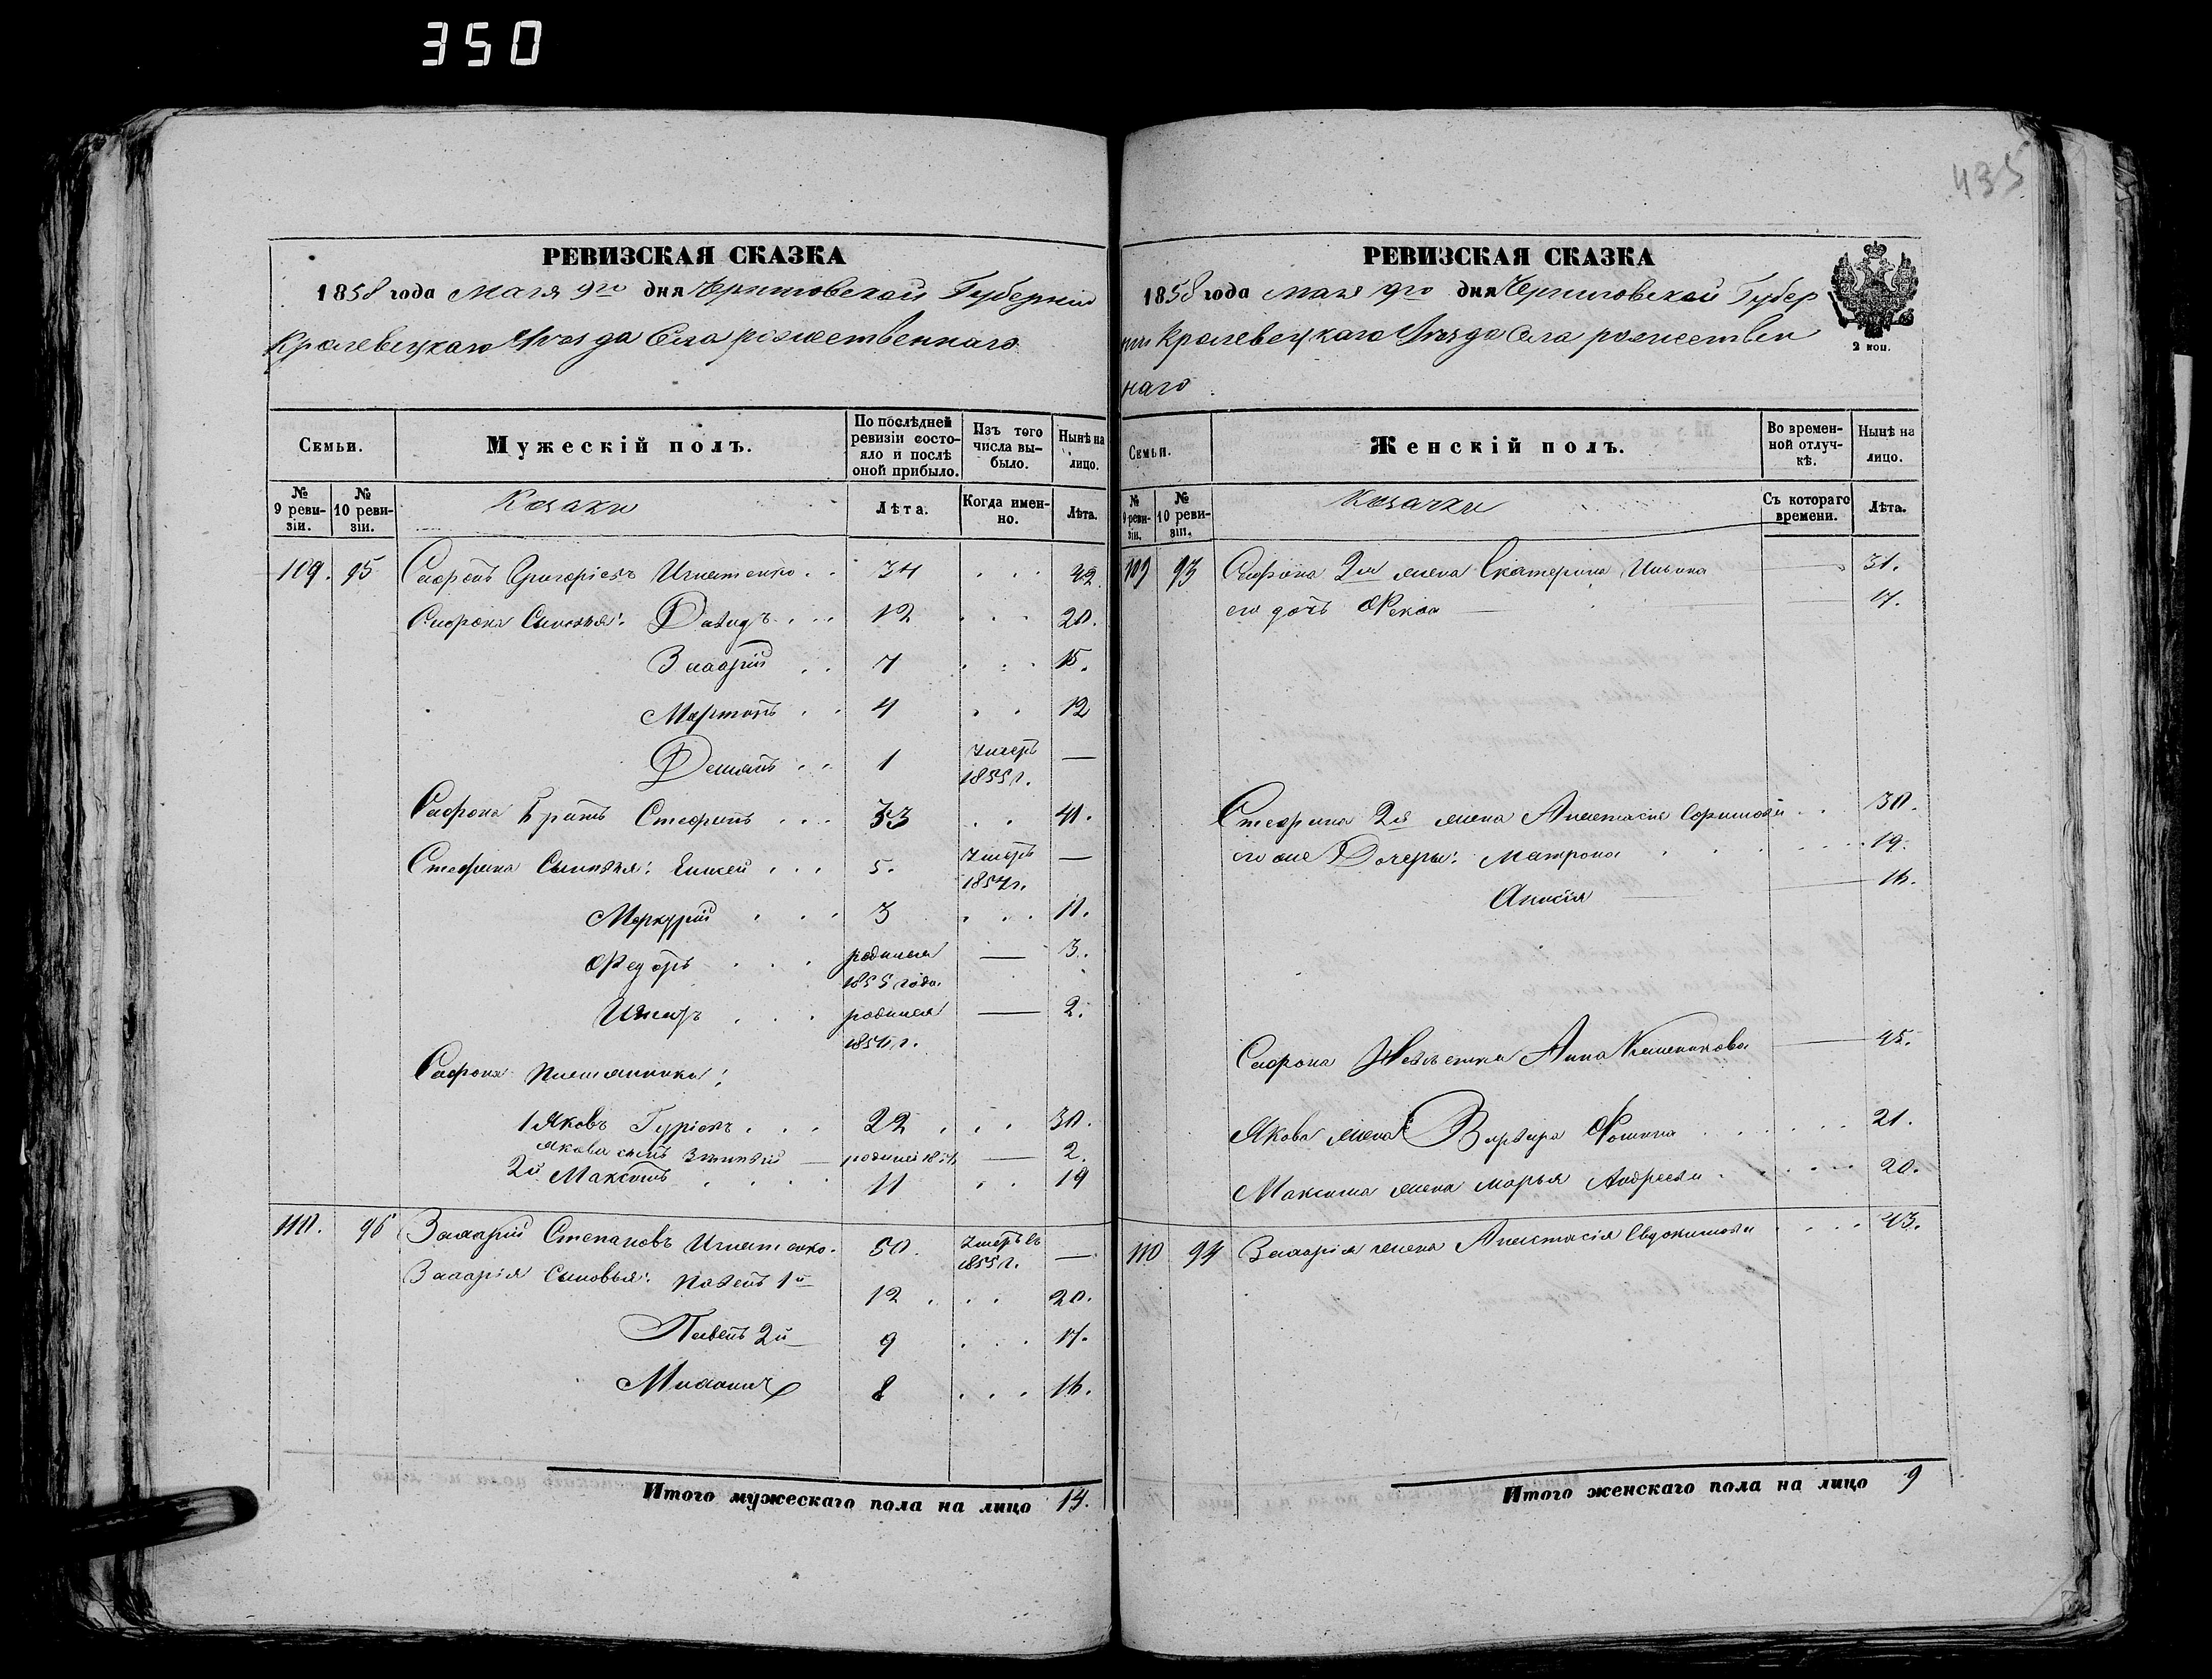 350
435
РЕВИЗСКАЯ СКАЗКА
1858 года Маія 9го дня Черниговской Губерніи
Кролевецкаго Уѣзда Села рожественнаго
Семьи.
Мужескій полъ.
По послѣдней ревизіи состояло и послѣ оной прибыло.
Изъ того числа выбыло.
Нынѣ на лицо.
№ 9 ревизіи.
№ 10 ревизіи.
Козаки
Лѣта.
Когда именно.
Лѣта.
109. 95 Сафронъ Григоріевъ Игнатенко . . 34 . . . 42
Сафрона Сыновья: Давидъ . . . 12 . . . 20.
Захарій . . 7 . . . 15.
Мартинъ . . 4 . . 12
Демянъ . . 1 Умеръ 1855 г. —
Сафрона Братъ Стефанъ . . . 33 . . 41.
Стефана Сыновья: . . . 5. Умеръ 1854 г. —
Меркурій . . . 3 . . . 11.
Федоръ . . . родился 1855 года. — 3.
. . . родился — 2.
Сафрона племянники:
1 Яковъ Гуріевъ . . . 22 . . . 30.
Якова сынъ — родился — 2.
2й Максимъ . . . . 11 . . 19
110. 96 Захарій Степановъ Игнатенко. 50. Умеръ въ 1855 г. —
Захарія Сыновья: Павелъ 1й 12 . . . 20.
Павелъ 2й 9 . . . 17.
8 . . . 16.
Итого мужескаго пола на лицо 14.
РЕВИЗСКАЯ СКАЗКА
1858 года маія 9го дня Черниговской Губер
ніи Кролевецкаго Уѣзда Села рожествен
наго
2 коп.
Семьи.
Женскій полъ.
Во временной отлучкѣ.
Нынѣ на лицо.
№ 9 ревизіи.
№ 10 ревизіи.
Козачки
Съ котораго времени.
Лѣта.
109 93 Сафрона 2я жена Екатерина — 31.
его дочь Фекла — 17.
Стефана 2я жена Анастасія . . 30.
его же Дочери: Матрона . . . . . 19.
Анисія — 16.
Сафрона Невѣстка Анна — 45.
Якова жена Варвара Фомина . . . . . 21.
Максима жена Марья Андреева . . . . . 20.
110 94 Захарія жена Анастасія Евдокимова . . . . 43.
Итого женскаго пола на лицо 9